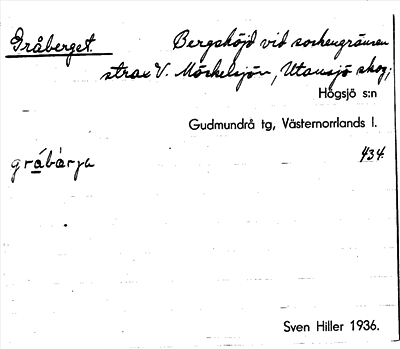 Gråberget. Bergshöjd vid sockengränsen
strax V. Möckelsjön, Utansjö skog,
Högsjö s:n
Gudmundrå tg, Västernorrlands l.
434.
gråbärja
Sven Hiller 1936.